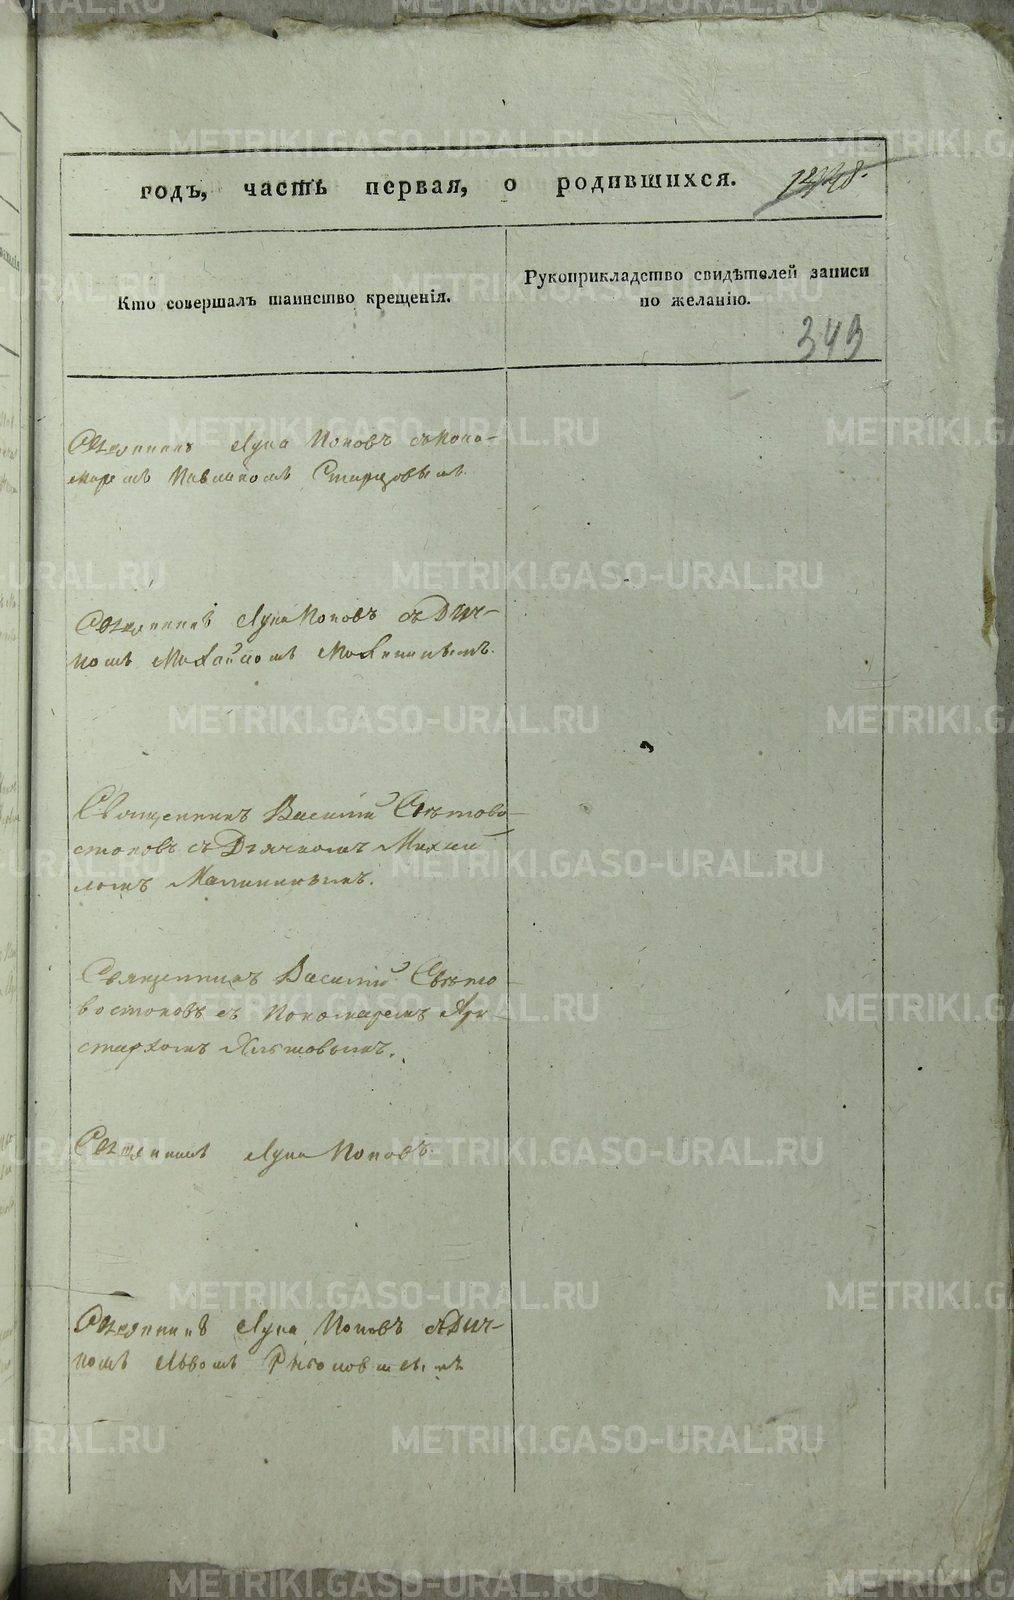 годъ, часть первая, о родившихся.
Кто совершалъ таинство крещенія.
Рукоприкладство свидѣтелей записи
по желанію.
343
Священникъ Лука Поповъ съ Поно-
маремъ Павликомъ Старцовымъ.
Священникъ Лука Поповъ съ Дьяч-
комъ Михайломъ
Священникъ Василій Свѣтово
стоковъ съ Дьячкомъ Михаи
ломъ Малининымъ.
Священникъ Василій Свѣто
востоковъ съ Пономаремъ Ари
стархомъ
Священникъ Лука Поповъ.
Священникъ Лука Поповъ съ Дьяч-
комъ Львомъ
METRIKI.GASO-URAL.RU